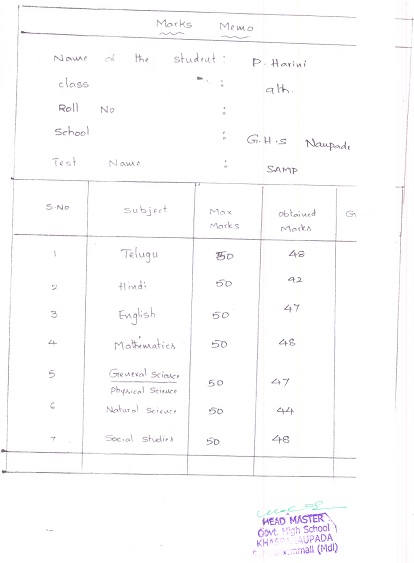 Marks Memo
Name of the student : P. Harini
class : 9th.
Roll No :
School : G.H.S Naupade
Test Name : SAMP
S.No Subject Max Marks Obtained Marks G
1 Telugu 50 48
2 Hindi 50 42
3 English 50 47
4 Mathematics 50 48
5 General Science 50 47
Physical Science
6 Natural Science 50 44
7 Social Studies 50 48
HEAD MASTER
Govt. High School
(Mdl)